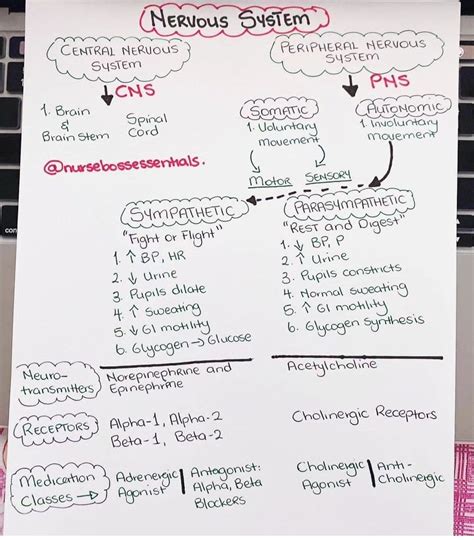 NERVOUS SYSTEM
CENTRAL NERVOUS
SYSTEM
CNS
1. Brain
&
Brain Stem
Spinal
Cord
@nursebossessentials.
PERIPHERAL NERVOUS
SYSTEM
PNS
SOMATIC
1. Voluntary
movement
MOTOR SENSORY
AUTONOMIC
1. Involuntary
movement
SYMPATHETIC
"Fight or Flight"
1. ↑ BP, HR
2. ↓ Urine
3. Pupils dilate
4. ↑ Sweating
5. ↓ GI motility
6. Glycogen → Glucose
PARASYMPATHETIC
"REST and Digest"
1. ↓ BP, P
2. ↑ Urine
3. Pupils constricts
4. Normal sweating
5. ↑ GI motility
6. Glycogen Synthesis
Neuro-
transmitters
Norepinephrine and
Epinephrine
Acetylcholine
RECEPTORS
Alpha-1, Alpha-2
Beta-1, Beta-2
Cholinergic Receptors
Medication
Classes →
Adrenergic
Agonist
Antagonist:
Alpha, Beta
Blockers
Cholinergic
Agonist
Anti-
Cholinergic